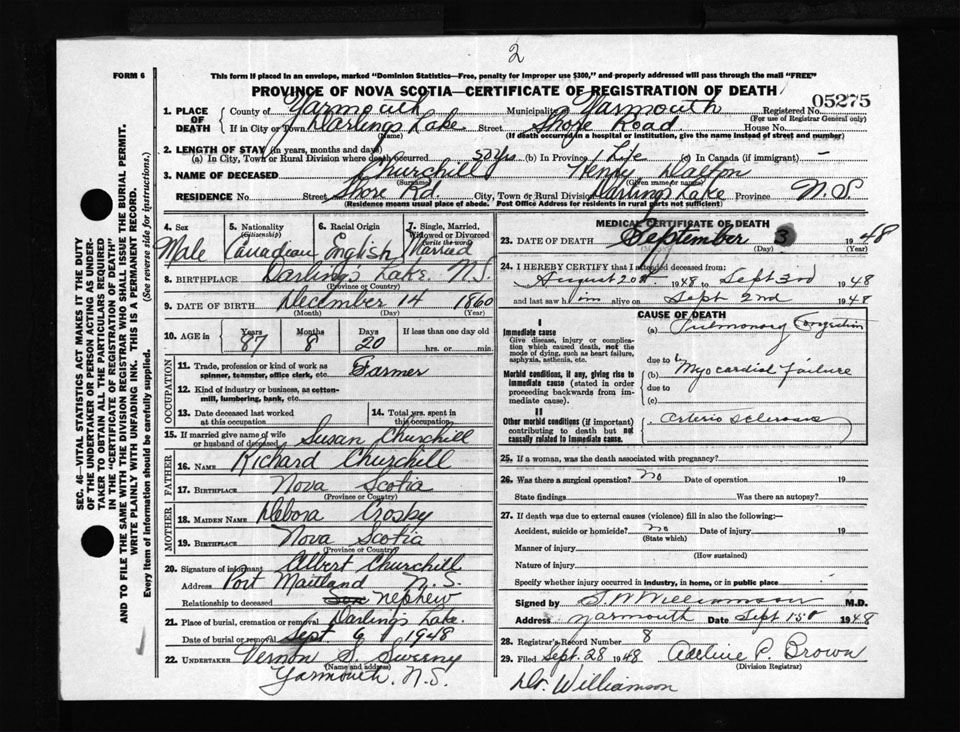 2
FORM 6
This form if placed in an envelope, marked "Dominion Statistics—Free, penalty for improper use $300," and properly addressed will pass through the mail "FREE"
PROVINCE OF NOVA SCOTIA—CERTIFICATE OF REGISTRATION OF DEATH
05275
1. PLACE OF DEATH
County of Yarmouth Municipality Yarmouth Registered No.
(For use of Registrar General only)
If in City or Town Darlings Lake Street Shore Road House No.
(Name) (If death occurred in a hospital or institution, give the name instead of street and number)
2. LENGTH OF STAY (in years, months and days)
(a) In City, Town or Rural Division where death occurred 50 yrs (b) In Province Life (c) In Canada (if immigrant) —
3. NAME OF DECEASED Churchill Henry Dalton
(Surname) (Given name or names)
RESIDENCE No. Street Shore Rd. City, Town or Rural Division Darlings Lake Province N.S.
(Residence means usual place of abode. Post Office Address for residents in rural parts not sufficient)
4. Sex 5. Nationality (Citizenship) 6. Racial Origin 7. Single, Married, Widowed or Divorced (write the word)
Male Canadian English Married
8. BIRTHPLACE Darlings Lake N.S.
(Province or Country)
9. DATE OF BIRTH December 14 1860
(Month) (Day) (Year)
10. AGE in Years Months Days If less than one day
87 8 20 hrs. or min.
OCCUPATION
11. Trade, profession or kind of work as spinner, teamster, office clerk, etc. Farmer
12. Kind of industry or business, as cotton-mill, lumbering, bank, etc.
13. Date deceased last worked at this occupation 14. Total yrs. spent in this occupation
15. If married give name of wife or husband of deceased Susan Churchill
FATHER
16. NAME Richard Churchill
17. BIRTHPLACE Nova Scotia
(Province or Country)
MOTHER
18. MAIDEN NAME Debora Crosby
19. BIRTHPLACE Nova Scotia
(Province or Country)
20. Signature of informant Albert Churchill
Address Port Maitland N.S.
Relationship to deceased Son nephew
21. Place of burial, cremation or removal Darlings Lake.
Date of burial or removal Sept. 6 1948
22. UNDERTAKER Vernon S. Sweeny
(Name and address)
Yarmouth, N.S.
MEDICAL CERTIFICATE OF DEATH
23. DATE OF DEATH September 3 1948
(Day)
24. I HEREBY CERTIFY that I attended deceased from:
August 20th 1948 to Sept 3rd 1948
and last saw him alive on Sept 2nd 1948
CAUSE OF DEATH
I
Immediate cause (a) Pulmonary Congestion
Give disease, injury or complication which caused death, not the mode of dying, such as heart failure, asphyxia, asthenia, etc.
due to
Morbid conditions, if any, giving rise to immediate cause (stated in order proceeding backwards from immediate cause).
(b) Myocardial Failure
due to
(c)
II
Other morbid conditions (if important) contributing to death but not causally related to immediate cause.
Arterio sclerosis
25. If a woman, was the death associated with pregnancy?
26. Was there a surgical operation? no Date of operation 19
State findings Was there an autopsy?
27. If death was due to external causes (violence) fill in also the following:—
Accident, suicide or homicide? no Date of injury 19
(State which)
Manner of injury
(How sustained)
Nature of injury
Specify whether injury occurred in industry, in home, or in public place
Signed by S W Williamson M.D.
Address Yarmouth Date Sept 15th 1948
28. Registrar's Record Number 8
29. Filed Sept. 28 1948 Adeline P. Brown
(Division Registrar)
Dr. Williamson
SEC. 46—VITAL STATISTICS ACT MAKES IT THE DUTY
OF THE UNDERTAKER OR PERSON ACTING AS UNDER-
TAKER TO OBTAIN ALL THE PARTICULARS REQUIRED
IN THE "CERTIFICATE OF REGISTRATION OF DEATH"
AND TO FILE THE SAME WITH THE DIVISION REGISTRAR WHO SHALL ISSUE THE BURIAL PERMIT.
WRITE PLAINLY WITH UNFADING INK. THIS IS A PERMANENT RECORD.
Every item of information should be carefully supplied. (See reverse side for instructions.)